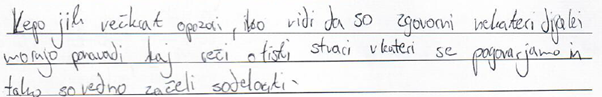 Lepo jih večkrat opozori, ko vidi da so zgovorni nekateri dijaki
morajo ponavadi kaj reči o tisti stvari v kateri se pogovarjamo in
tako so vedno začeli sodelovati.